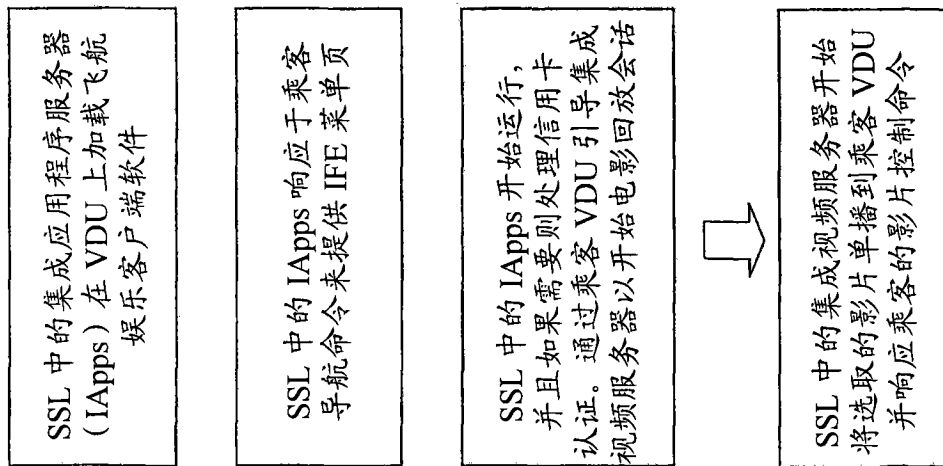 SSL 中的集成应用程序服务器
（IApps）在 VDU 上加载飞航
娱乐客户端软件
SSL 中的 IApps 响应于乘客
导航命令来提供 IFE 菜单页
SSL 中的 IApps 开始运行，
并且如果需要则处理信用卡
认证。通过乘客 VDU 引导集成
视频服务器以开始电影回放会话
SSL 中的集成视频服务器开始
将选取的影片单播到乘客 VDU
并响应乘客的影片控制命令